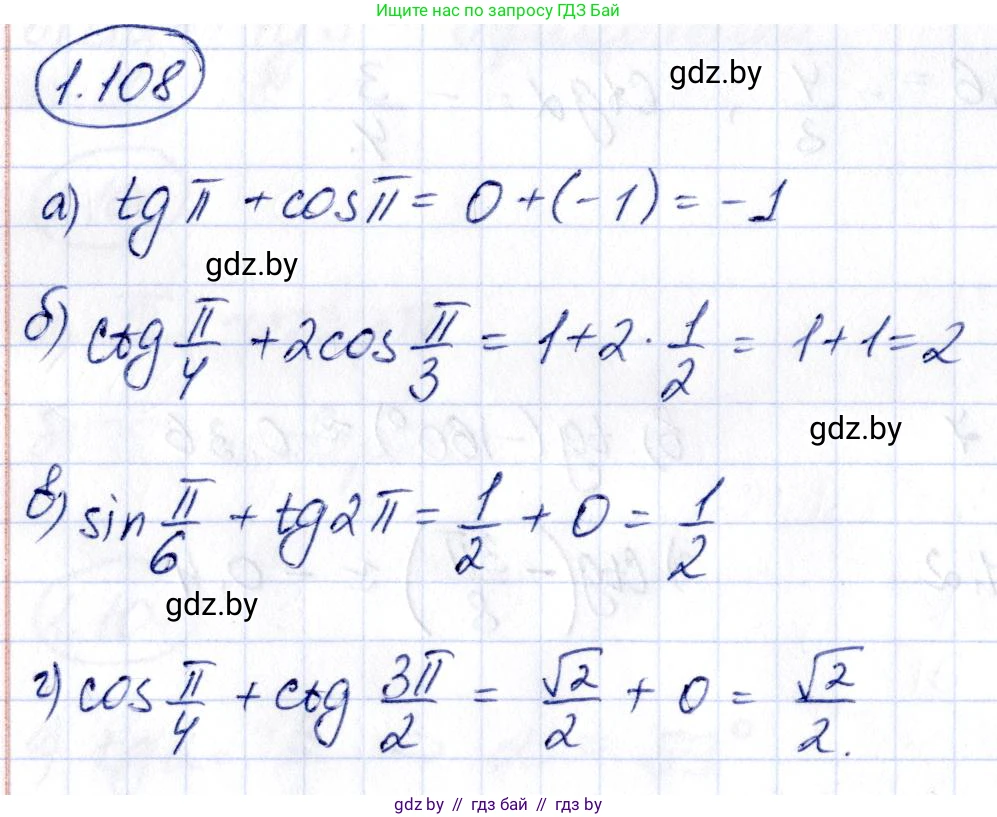 Ищите нас по запросу ГДЗ Бай
1.108
gdz.by
а) tg π + cos π = 0 + (-1) = -1
gdz.by
б) ctg π/4 + 2cos π/3 = 1 + 2 · 1/2 = 1 + 1 = 2
gdz.by
в) sin π/6 + tg 2π = 1/2 + 0 = 1/2
gdz.by
г) cos π/4 + ctg 3π/2 = √2/2 + 0 = √2/2.
gdz.by // гдз бай // гдз by